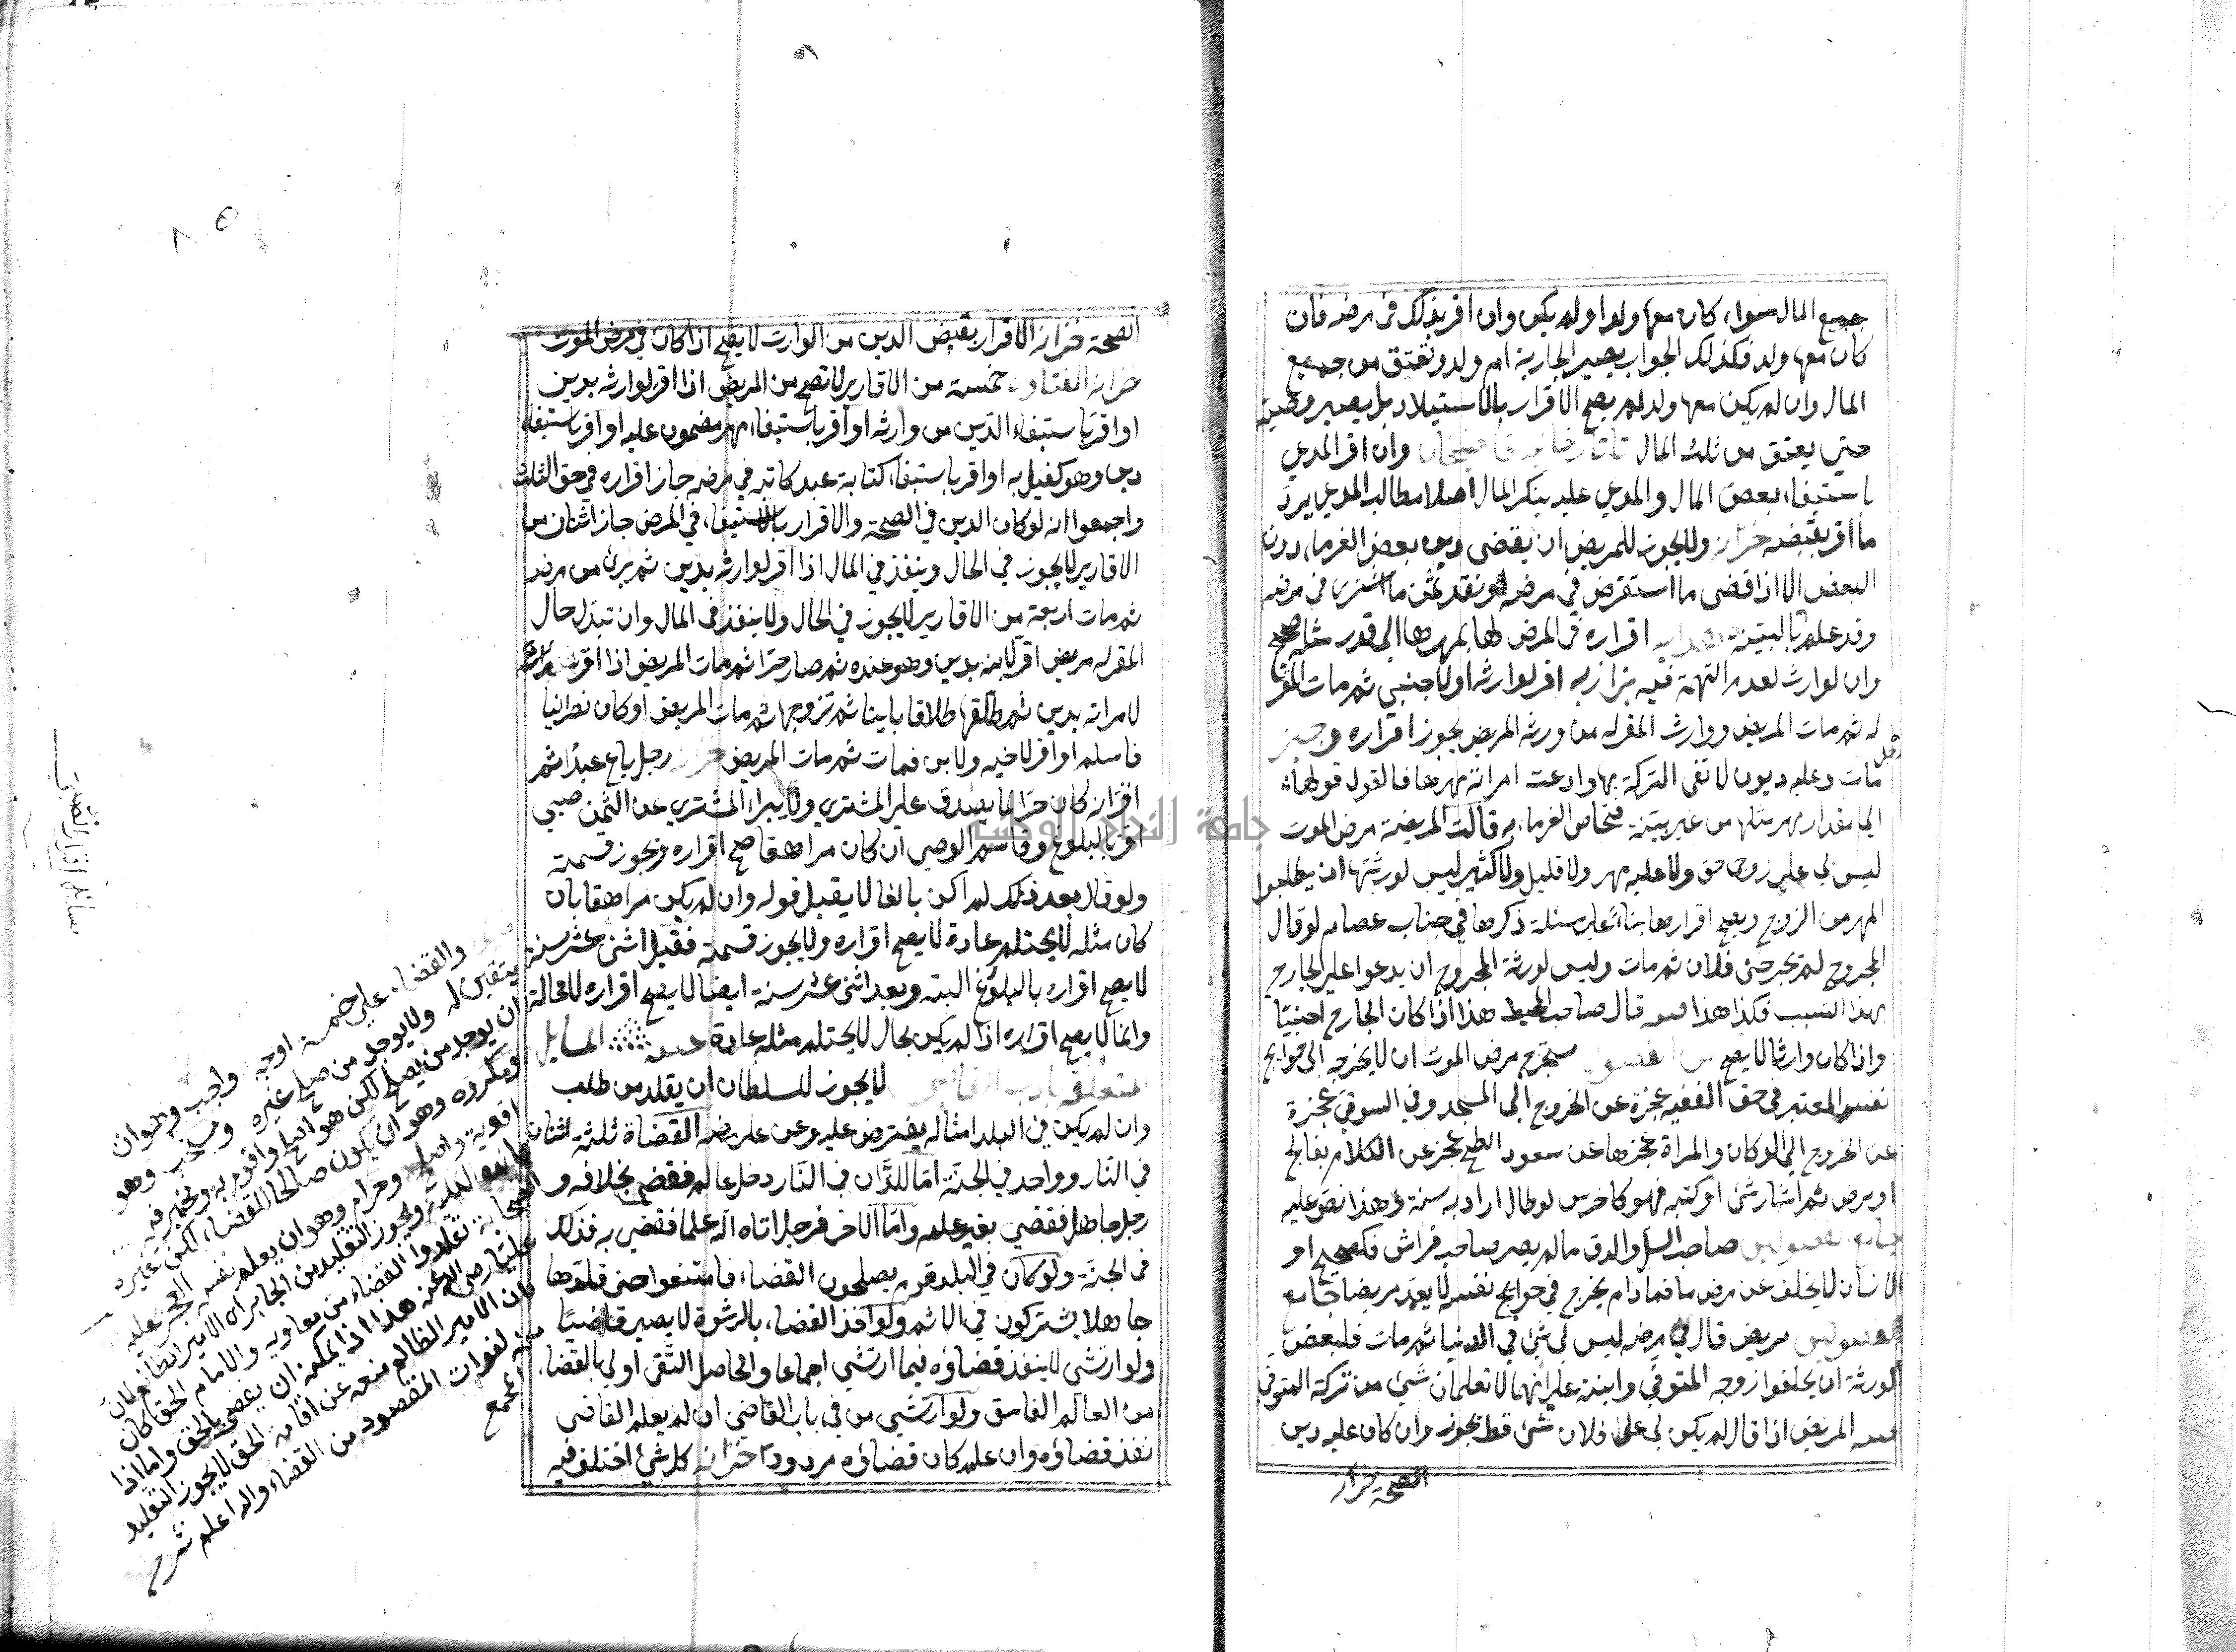 جميع المال سواء كان معها ولد او لم يكن وان اقر بذلك في مرضه فان
كان معها ولد فكذلك الجواب يصير الجارية ام ولد وتعتق من جميع
المال وان لم يكن معها ولد لم يصح الاقرار بالاستيلاد بل يصير وصية
حتى يعتق من ثلث المال تاتارخانيه قاضيخان وان اقر المدعي
باستيفاء بعض المال والمدعي عليه ينكر المال اصلا مطالب المدعي يرد
ما اقر بقبضه خزانه ولا يجوز للمريض ان يقضي دين بعض الغرماء دون
البعض الا اذا قضى ما استقرض في مرضه او نقد ثمن ما اشترى في مرضه
وقد علم بالبينة هدايه اقراره في المرض لها بمهرها الى قدر مثله صحيح
وان لوارث لعدم التهمة فيه بزازيه اقر لوارثه او لاجنبي ثم مات المقر
له ثم مات المريض ووارث المقر له من ورثة المريض يجوز اقراره وجيز
رجل
مات وعليه ديون لا تفي التركة بها وادعت امراته مهرها فالقول قولها
الى مقدار مهر مثلها من غير بينة فتحاص الغرماء به قالت المريضة مرض الموت
ليس لي على زوجي حق ولا عليه مهر ولا قليل ولا كثير ليس لورثتها ان يطلبوا
المهر من الزوج ويصح اقرارها بناء على مسئلة ذكرها في جناب عصام لو قال
المجروح لم يجرحني فلان ثم مات وليس لورثة المجروح ان يدعوا على الجارح
بهذا السبب فكذا هذا قال صاحب المحيط هذا اذا كان الجارح اجنبيا
واذا كان وارثا لا يصح من الفصول ستخرج مرض الموت ان لا يخرج الى حوايج
نفسه المعتبر في حق الفقيه عجزه عن الخروج الى المسجد وفي السوقي عجزه
عن الخروج الى الدوكان والمراة عجزها عن صعود السطح عجز عن الكلام بفالج
او مرض ثم اشار بشئ او كتبه فهو كاخرس لو طال اراد به سنة وهذا نص عليه
جامع الفصولين صاحب السل والدق ما لم يصر صاحب فراش فكصحيح او
الانسان لا يخلف عن مرض ما فما دام يخرج في حوايج نفسه لا يعد مريضا جامع
الفصولين مريض قال في مرضه ليس لي شئ في الدنيا ثم مات فلبعض
الورثة ان يحلفوا زوجه المتوفي وابنته على انهما لا تعلمان شئ من تركة المتوفي
المريض اذا قال لم يكن لي على فلان شئ قط يجوز وان كان عليه دين
الصحة خزانه
الصحة خزانه الاقرار بقبض الدين من الوارث لا يصح اذا كان في مرض الموت
خزانه الفتاوى خمسة من الاقارير لا تصح من المريض اذا اقر لوارثه بدين
او اقر باستيفاء الدين من وارثه او اقر باستيفاء مهر مضمون عليه او اقر باستيفاء
دين وهو كفيل به او اقر باستيفاء كتابة عبد كاتبه في مرضه جاز اقراره في حق الثلث
واجمعوا انه لو كان الدين في الصحة والاقرار بالاستيفاء في المرض جاز اثنان من
الاقارير لا يجوز في الحال وينفذ في المال اذا اقر لوارثه بدين ثم برئ من مرضه
ثم مات اربعة من الاقارير لا يجوز في الحال ولا ينفذ في المال وان تبدل حال
المقر له مريض اقر لابنه بدين وهو عنده ثم صار حرا ثم مات المريض اذا اقر
لامراته بدين ثم طلقها طلاقا باينا ثم تزوجها ثم مات المريض او كان نصرانيا
فاسلم او اقر لاخيه ولا ابن فمات ثم مات المريض خزانه رجل باع عبدا ثم
اقر انه كان حرا لم يصدق على المشتري ولا يبراء المشتري عن الثمن صبي
اقر بالبلوغ وقاسم الوصي ان كان مراهقا صح اقراره وتجوز قسمته
ولو قال بعد ذلك لم اكن بالغا لا يقبل قوله وان لم يكن مراهقا بان
كان مثله لا يحتلم عادة لا يصح اقراره ولا يجوز قسمته فقيل اثني عشر سنة
لا يصح اقراره بالبلوغ البته وبعد اثني عشر سنة ايضا لا يصح اقراره لا محالة
وانما لا يصح اقراره اذا لم يكن بحال لا يحتلم مثله عادة المسايل
المتعلقه بادب القاضي لا يجوز للسلطان ان يقلد من طلب
وان لم يكن في البلد امثاله يفترض عليه وعن على رضه القضاة ثلثة اثنان
في النار وواحد في الجنة اما اللذان في النار رجل عالم فقضى بخلافه و
رجل جاهل فقضى بغير علمه واما الاخر فرجل اتاه الله علما فقضى به فذلك
في الجنة ولو كان في البلد قوم يصلحون القضاء فامتنعوا حتى قلدها
جاهلا يشتركون في الاثم ولو اخذ القضاء بالرشوة لا يصير قاضيا
ولو ارتشى لا ينفذ قضاؤه فيما ارتشى اجماعا والحاصل التقى اولى بالقضاء
من العالم الفاسق ولو ارتشى من في باب القاضي ان لم يعلم القاضي
نفذ قضاؤه وان علم كان قضاؤه مردودا خزانه كل شئ اختلف فيه
مسائل اقرار الصبي
والقضاء على خمسة اوجه واجب وهو ان
يتعين له ولا يوجد من صلح غيره ومستحب وهو
ان يوجد من يصلح لكن هو اصلح واقوم به ومخير فيه
ومكروه وهو ان يكون صالحا للقضاء لكن غيره
اقوم به واصلح وحرام وهو ان يعلم نفسه العجز عليه
ويجوز التقليد من الجابر اي الامير الظالم لان
الصحابة تقلدوا القضاء من معاويه والامام الحق كان
عليا رضي الله عنه هذا اذا يمكنه ان يقضي بالحق واما اذا
كان الامير الظالم منعه عن اقامة الحق لا يجوز التقليد
منه لفوات المقصود من القضاء والله اعلم شرح
المجمع
جامعة النجاح الوطنية